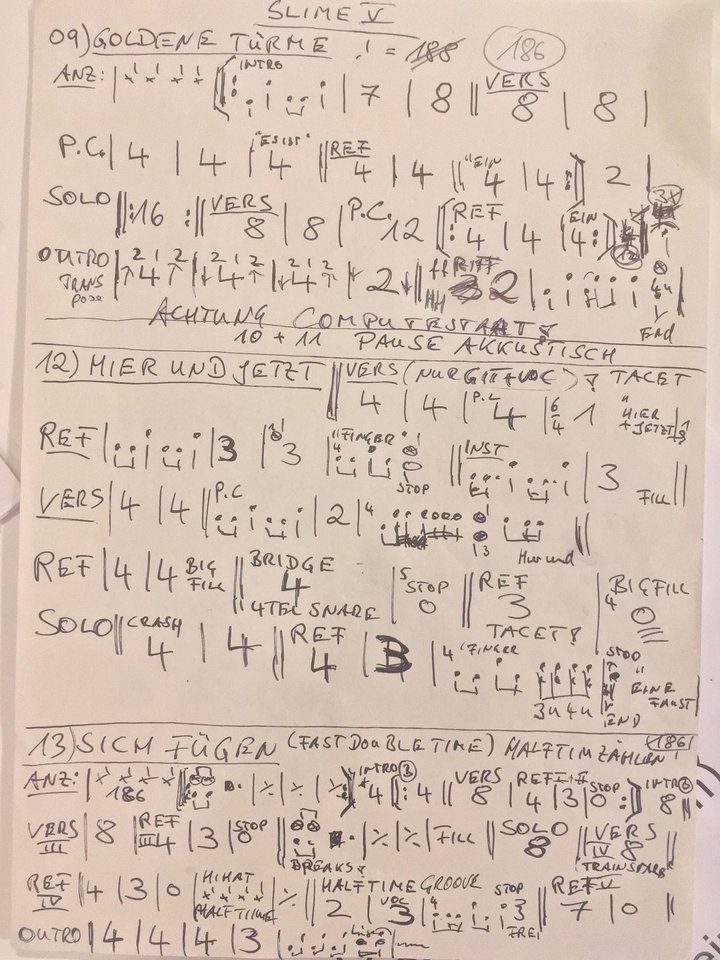 SLIME V
09) GOLDENE TÜRME ♩ = 188 186
ANZ: | x x x x | INTRO | 7 | 8 || VERS 8 | 8 |
P.C. | 4 | 4 | "ES IST" 4 || REF 4 | 4 || "EIN 4 | 4 :|| 2 |
SOLO ||: 16 :|| VERS 8 | 8 | P.C. 12 || REF : 4 | 4 | EIN 4 :|| 12 3x
OUTRO TRANSPOSE | 2 1 2 4 | 2 1 2 4 | 2 1 2 4 | 2 || ff RIFF 2 | 4 u END
ACHTUNG COMPUTESTART!
10 + 11 PAUSE AKKUSTISCH
12) HIER UND JETZT || VERS (NUR GIT + VOC) ! TACET
4 | 4 | P.C 4 | 6/4 1 "HIER + JETZT"
REF | | 3 | 3 | "FINGER 4 STOP || INST | 3 FILL ||
VERS | 4 | 4 || P.C | 2 | 4 13 Hier und ||
REF | 4 | 4 BIG FILL || BRIDGE 4 4TEL SNARE | 5 STOP 0 || REF 3 TACET! | BIG FILL 4 0
SOLO || CRASH 4 | 4 || REF 4 | 3 | 4 "FINGER 3u4u STOP "EINE FAUST END
13) SICH FÜGEN (FAST DOUBLE TIME) HALFTIM ZÄHLEN! 186
ANZ: | x x x x 186 || | ٪ | ٪ | ٪ || INTRO 4 ||: 4 || VERS 8 | REF I+II 4 | 3 | STOP 0 :|| INTRO 8
VERS III | 8 | REF III 4 | 3 | STOP 0 || BREAKS! | ٪ | ٪ | FILL || SOLO 8 || VERS IV 8 ||
REF IV | 4 | 3 | 0 | HIHAT x x x x HALFTIME | ٪ || HALFTIME GROOVE 2 | VOC 3 | 4 STOP 3 FREI || REF V 7 | 0 ||
OUTRO | 4 | 4 | 4 | 3 |